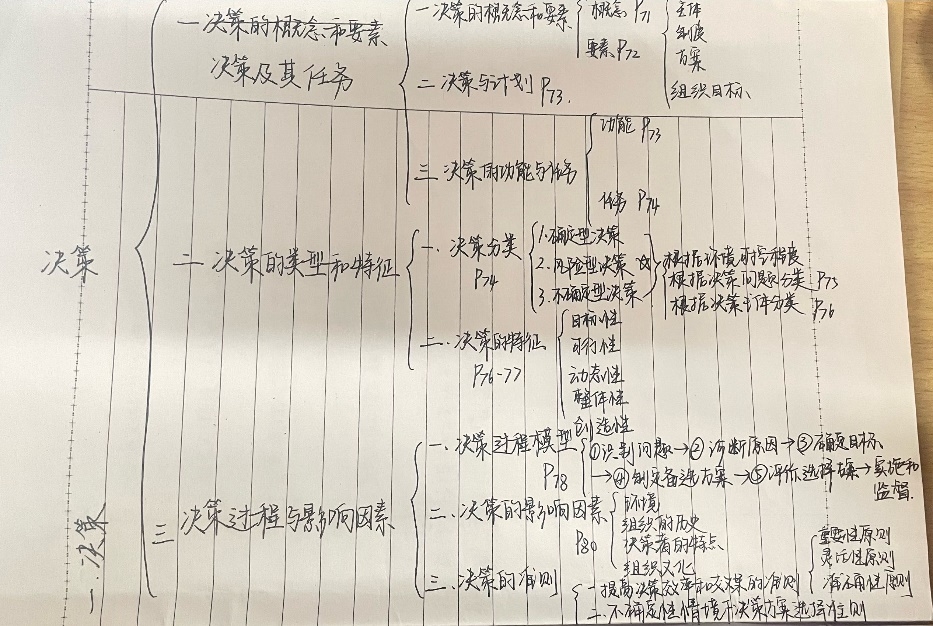 决策
一.决策
一.决策的概念和要素
决策及其任务
一决策的概念和要素
概念 P71
要素 P72
主体
制度
方案
组织目标
二 决策与计划 P73.
三 决策的功能与任务
功能 P73
任务 P74
二 决策的类型和特征
一. 决策分类
P74
1.确定型决策
2.风险型决策
3.不确定型决策
根据环境可控程度
根据决策问题分类 P75
根据决策主体分类 P76
二. 决策的特征
P76-77
目标性
可行性
动态性
整体性
创造性
三 决策过程与影响因素
一. 决策过程模型
P78
①识别问题→②诊断原因→③确定目标
→④制定备选方案→⑤评价选择方案→实施和
监督.
二. 决策的影响因素
P80
环境
组织的历史
决策者的特点
组织文化
三. 决策的准则
一提高决策效率和效果的准则
重要性原则
灵活性原则
准确性原则
二.不确定性情境下决策方案选择准则